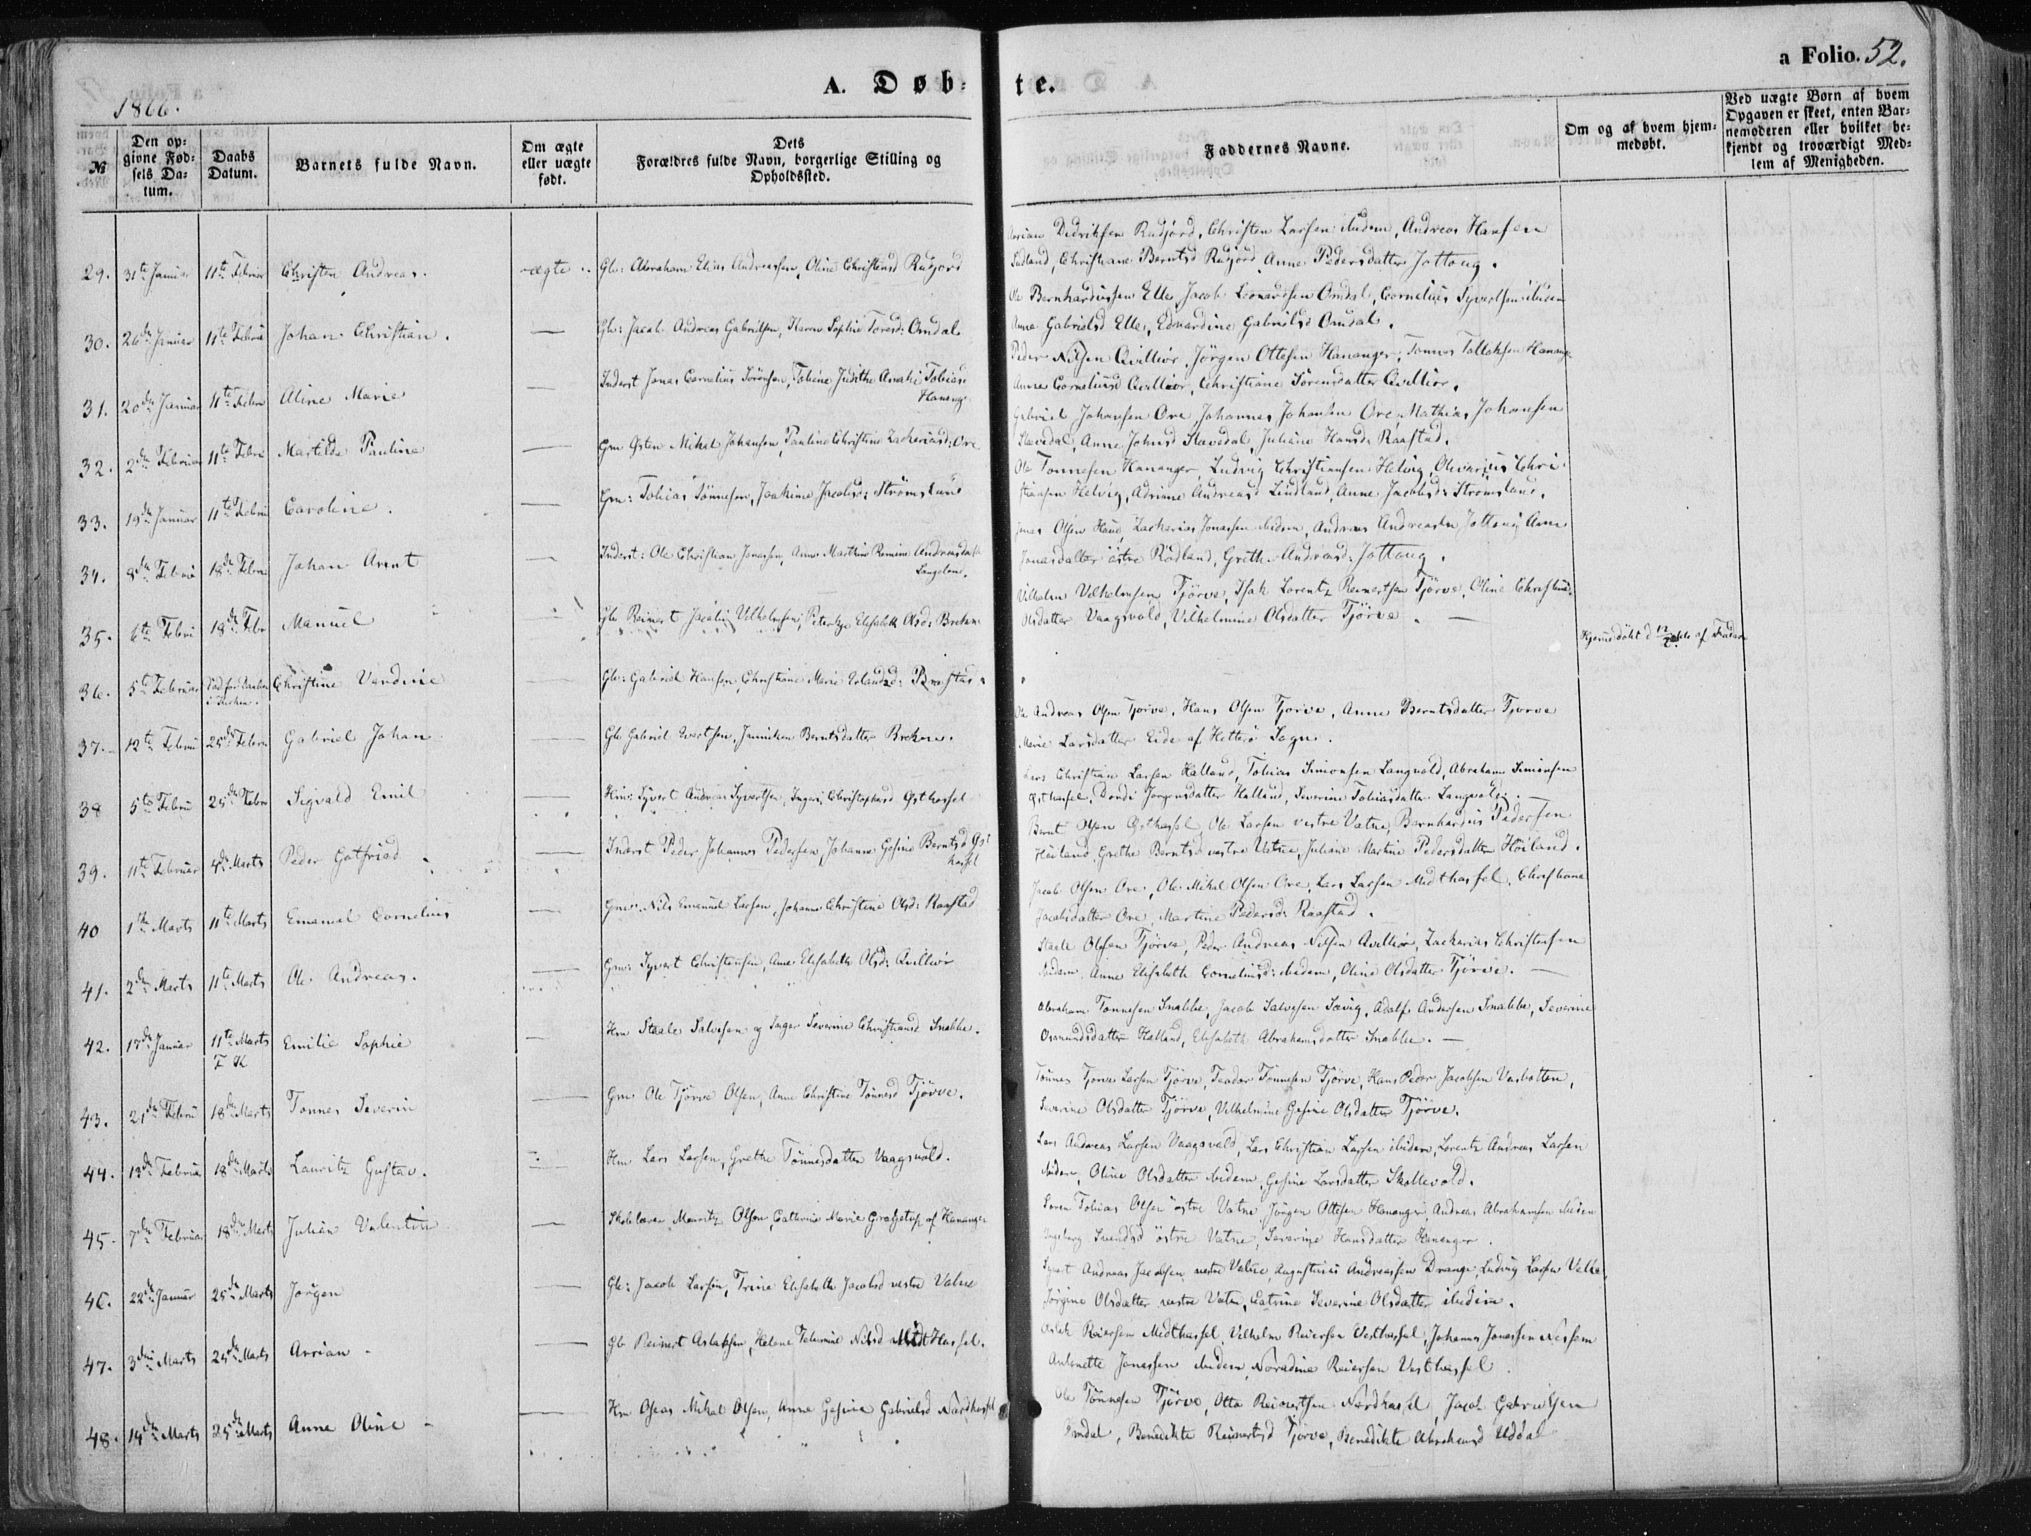 a Folio. 52.
A. Døb-te.
1866.
№
Den opgivne Fødsels Datum.
Daabs Datum.
Barnets fulde Navn.
Om ægte eller uægte født.
Dets Forældres fulde Navn, borgerlige Stilling og Opholdssted.
Faddernes Navne.
Om og af hvem hjemmedøbt.
Ved uægte Børn af hvem Opgaven er skeet, enten Barnemoderen eller hvilket bekjendt og troværdigt Medlem af Menigheden.
29. 31te Januar 11te Februar Christen Andreas. ægte Gb: Abraham Elias Andreassen, Oline Christensd Rudjord
Didriksen Rudjord, Christen Larsen ibidem, Andreas Hansen
Lindland, Christiane Berntsd Rudjord Anne Pedersdatter Jottoug.
30. 26de Januar 11te Febru Johan Christian. — Gb: Jacob Andreas Gabrielsen, Karen Sophie Toresd: Omdal
Ole Bernhardussen Elle, Jacob Leonardsen Omdal, Cornelius Syvertsen ibidem
Anna Gabrielsd Elle, Edvardine Gabrielsd Omdal.
31. 20de Januar 11te Febru Aline Marie — Inderst Jonas Cornelius Sörensen, Tobine Judithe Amalie Tobiasd
Hanang
Peder Nilsen Qvilliör, Jörgen Ottesen Hananger, Tønnes Tollaksen Hanang
Anna Corneliusd Qvilliör, Christiane Sörensdatter Qvilliör.
32. 2den Februar 11te Febru Martilde Pauline — Gm Østen Mikal Johansen, Pauline Christine Zachariasd: Ore
Gabriel Johansen Ore Johannes Johansen Ore Mathias Johansen
Stavedal, Anne Johnsd Stavedal, Juliane Hansd: Raastad.
33. 19de Januar 11te Febru Caroline. — Gm: Tobias Tönnesen, Joakime Jacobsd: Strömsland
Ole Tonnesen Hananger, Ludvig Christiansen Helvig, Olivarius Chri-
stiansen Helvig, Adriane Andreasd Lindland, Anne Jacobsd: Strömsland.
34. 8de Febru 18de Febru Johan Arent — Inderst: Ole Christian Jonassen, Anne Marthine Andreasdat
Langeland.
Jonas Olsen Haug, Zacharias Jonassen ibidem, Andreas Andreassen Jottoug Anne
Jonasdatter östre Rödland, Grethe Andreasd: Jottoug.
35. 6te Febru 18de Febr Manuel Gb: Reinert Jacobi Vilhelmsen, Elisabeth Olsd: Brekne
Vilhelm Vilhelmsen Tjörve, Isak Lorentz Reinertsen Tjörve, Oline Christine
Olsdatter Vaagsvold, Vilhelmine Olsdatter Tjörve. —
36. 5te Februar Christine Vendine Gb: Gabriel Hansen, Christiane Marie Raastad.
Hjemmedöbt d af Faderen
37. 12te Febru 25de Febru Gabriel Johan — Gb Gabriel Evertsen, Janniken Berntsdatter Brekne.
Ole Andreas Olsen Tjorve, Hans Olsen Tjorve, Anne Berntsdatter Tjorve
Marie Larsdatter Eide af Hetterö Sogn.
38 5te Febru 25de Febru Sigvald Emil — Hm: Syvert Andreas Syvertsen, Ingeri Christophersd Østhassel
Lars Christian Larsen Halland, Tobias Simonsen Langvold, Abraham Simonsen
Østhassel, Dordi Jörgensdatter Halland, Severine Tobiasdatter Langvold. —
39. 11te Februar 4de Marts Peder Gotfriad. — Inderst Peder Johannes Pedersen, Johanne Gesine Berntsd Øst
hassel
Bernt Olsen Østhassel, Ole Larsen vestre Vatne, Bernhardus Pedersen
Höiland, Grethe Berntsd vestre Vatne, Juliane Martine Pedersdatter Höiland.
40 1ste Marts 11te Marts Emanuel Cornelius — Gm: Nils Emanuel Larsen, Johanne Christine Olsd: Raastad
Jacob Olsen Ore, Ole Mikal Olsen Ore, Lars Larsen Midthassel, Christiane
Jacobsdatter Ore, Martine Pedersd: Raastad.
41. 2den Marts 11te Marts Ole Andreas. — Gm: Syvert Christensen, Anne Elisabeth Olsd: Qvilliör
Staale Olsen Tjörve, Peder Andreas Nilsen Qvilliör, Zacharias Christensen
ibidem, Anne Elisabeth Corneliusd: ibidem, Oline Olsdatter Tjörve. —
42. 17de Januar 11te Marts Emilie Sophie — Hm Staale Salvesen og Inger Severine Christiansd Snekke.
F K
Abraham Tonnesen Snekke, Jacob Salvesen Sævig, Adolf Andersen Snekke, Severine
Osmundsdatter Halland, Elisabeth Abrahamsdatter Snekke. —
43. 21de Febru 18de Marts Tonnes Severin — Gm Ole Tjörve Olsen, Anne Christine Tönnesd Tjörve.
Tönnes Tjorve Larsen Tjörve, Teodor Tönnesen Tjörve, Hans Peder Jacobsen Vasbotten,
Severine Olsdatter Tjörve, Vilhelmine Gesine Olsdatter Tjörve.
44. 13de Februa 18de Marts Lauritz Gustav. — Hm Lars Larsen, Grethe Tönnesdatter Vaagsvold.
Lars Andreas Larsen Vaagsvold, Lars Christian Larsen ibidem, Lorentz Andreas Larsen
ibidem, Oline Olsdatter ibidem, Gesine Larsdatter Skollevold.
45. 7de Februar 18de Marts Julian Valentin — Skolelærer Mauritz Olsen, Cathrine Marie Gretjetop af Hananger
Soren Tobias Olsen östre Vatne Jörgen Ottesen Hananger, Andreas Abrahamsen ibidem
Ingeborg Svendsd östre Vatne, Severine Hansdatter Hananger.
46. 22de Januar 25de Marts Jørgen — Gb: Jacob Larsen, Trine Elisabeth Jacobsd vestre Vatne
Syvert Andreas Jacobsen vestre Vatne, Augustinus Andreassen Drange, Ludvig Larsen Vatne,
Jörgine Olsdatter vestre Vatne, Catrine Severine Olsdatter ibidem.
47. 3die Marts 25de Marts Arrian. — Gb Reinert Aslaksen, Helene Nilsd Midthassel.
Aslak Reiersen Midthassel, Vilhelm Reiersen Vesthassel, Johannes Jonassen Nesheim
Antonette Jonassen ibidem, Noradine Reiersen Vesthassel.
48. 14de Marts 25de Marts Anne Oline — Hm Oseas Mikal Olsen, Anne Gesine Gabrielsd Nordhassel
Ole Tönnesen Tjörve, Otto Reinertsen Nordhassel, Jacob Gabrielsen
Omdal, Benedikte Reinertsd Tjörve, Benedikte Abrahamsd Uddal